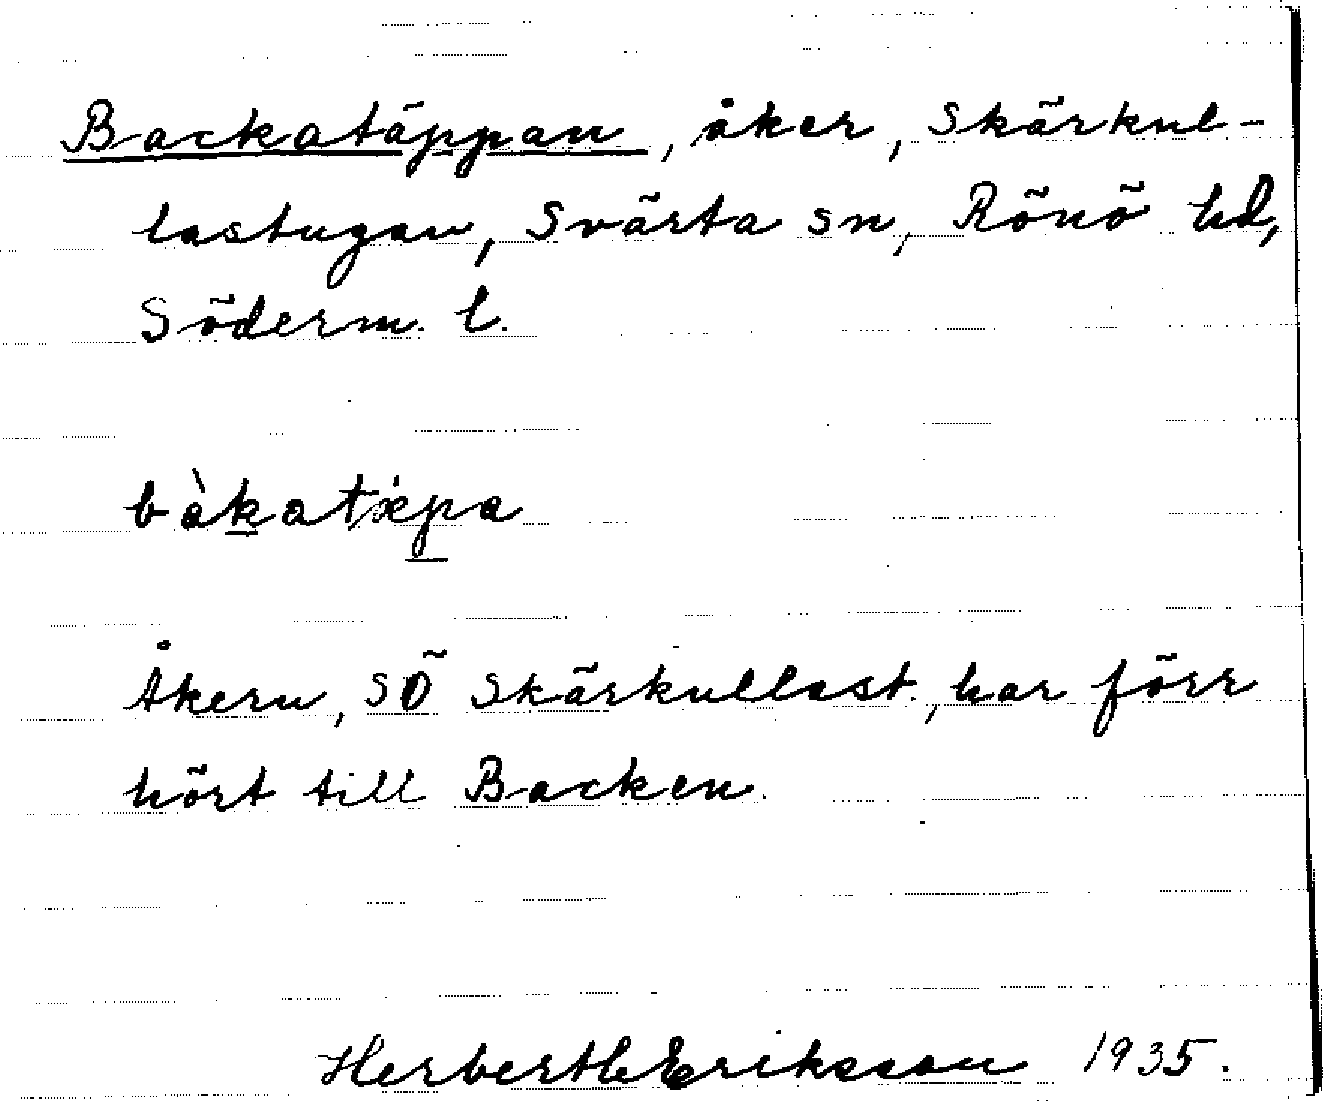 Backatäppan, åker, Skärkul-
lastugan, Svärta sn, Rönö hd,
Söderm. l.
bàkatæ̀pa
Åkern, SÖ Skärkullast., har förr
hört till Backen.
Herbert Eriksson 1935.